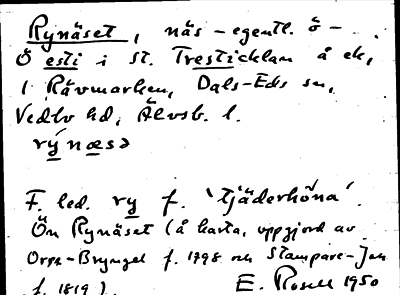 Rynäset, näs – egentl. ö –
Ö esti i St. Tresticklan å ek,
i Rävmarken, Dals-Eds sn,
Vedbo hd, Älvsb. l.
rýnæsə
F. led. ry f. 'tjäderhöna'.
Ön Rynäset (å karta, uppgjord av
Orre-Bryngel f. 1798 och Stampare-Jan
f. 1819). E. Rosell 1950